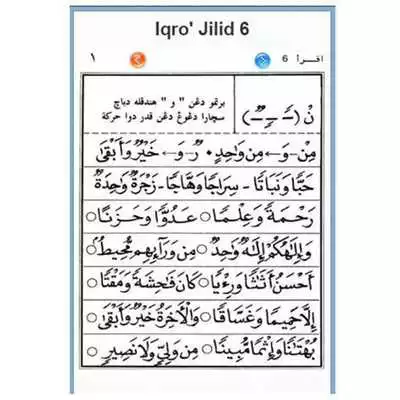 Iqro' Jilid 6
١ اقرأ 6
نْ (ـًـ ـٍـ ـٌـ)
برتمو دغن " و " هندقله دباچ
سچارا دغوڠ دغن قدر دوا حركة
مِنْ - وَ ← مِنْ وَاحِدٍ ٠ رٌ - وَ ← خَيْرٌ وَأَبْقَىٰ
حَبًّا وَنَبَاتًا - سِرَاجًا وَهَّاجًا - زَجْرَةٌ وَاحِدَةٌ
رَحْمَةً وَعِلْمًا ○ عَدُوًّا وَحَزَنًا ○
وَإِلَٰهُكُمْ إِلَٰهٌ وَاحِدٌ ○ مِنْ وَرَآئِهِمْ مُحِيطٌ ○
أَحْسَنُ أَثَاثًا وَرِءْيًا ○ كَانَ فَاحِشَةً وَمَقْتًا ○
إِلَّا حَمِيمًا وَغَسَّاقًا ○ وَالْآخِرَةُ خَيْرٌ وَأَبْقَىٰ ○
بُهْتَانًا وَإِثْمًا مُبِينًا ○ مِنْ وَلِيٍّ وَلَا نَصِيرٍ ○